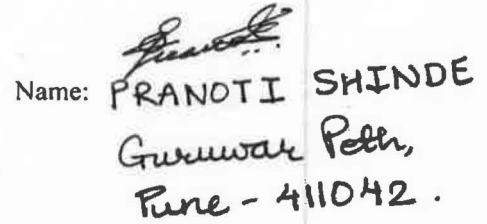 Name: PRANOTI SHINDE
Guruwar Peth,
Pune - 411042.